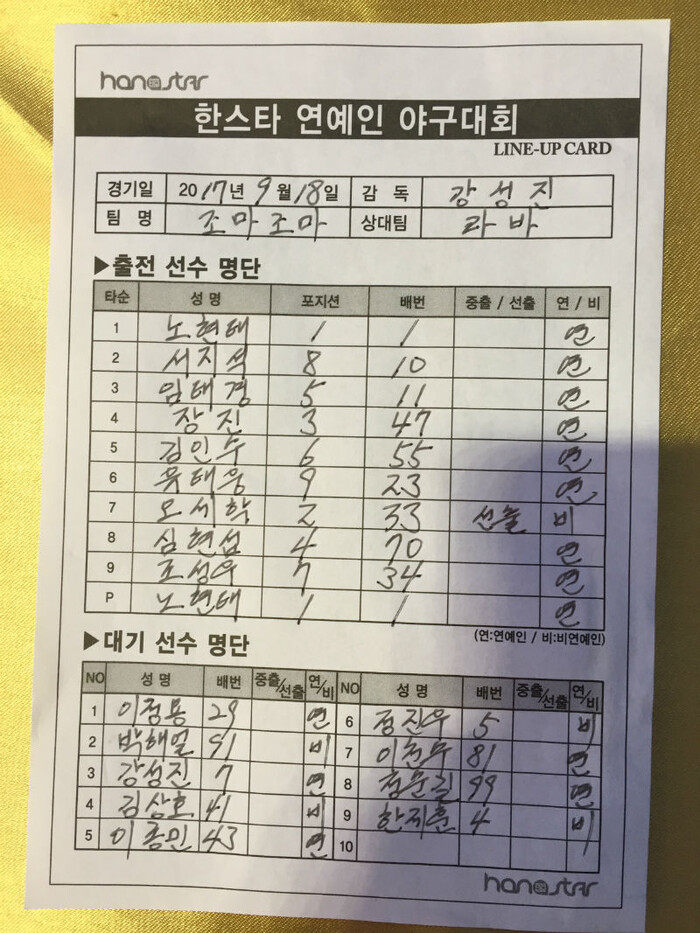 hanstar
한스타 연예인 야구대회
LINE-UP CARD
경기일 2017년 9월 18일 감 독 강성진
팀 명 조마조마 상대팀 라바
▶출전 선수 명단
타순 성 명 포지션 배번 중출 / 선출 연 / 비
1 노현태 1 1 연
2 서지석 8 10 연
3 임태경 5 11 연
4 장진 3 47 연
5 김인수 6 55 연
6 윳태웅 9 23 연
7 오세학 2 33 선출 비
8 심현섭 4 70 연
9 조성우 7 34 연
P 노현태 1 1 연
(연:연예인 / 비:비연예인)
▶대기 선수 명단
NO 성 명 배번 중출/선출 연/비 NO 성 명 배번 중출/선출 연/비
1 이정용 29 연 6 정진우 5 비
2 박해일 91 비 7 81 연
3 강성진 7 연 8 99 연
4 김상호 41 비 9 한지훈 4 비
5 이종민 43 연 10
hanstar